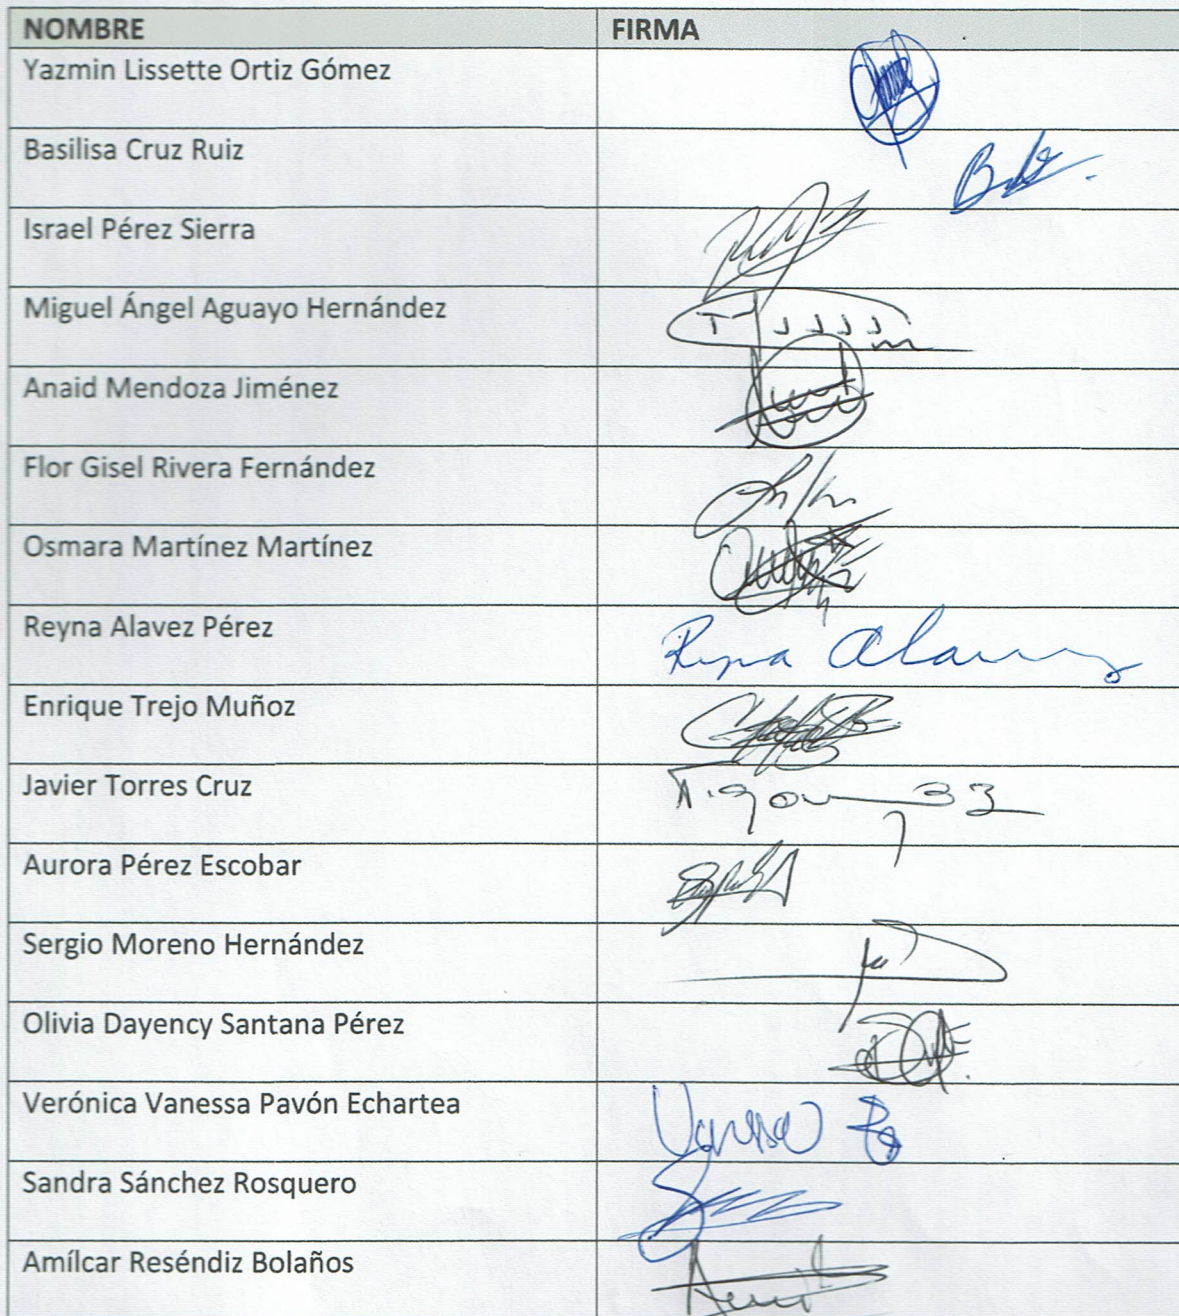 NOMBRE FIRMA
Yazmin Lissette Ortiz Gómez
Basilisa Cruz Ruiz
Israel Pérez Sierra
Miguel Ángel Aguayo Hernández
Anaid Mendoza Jiménez
Flor Gisel Rivera Fernández
Osmara Martínez Martínez
Reyna Alavez Pérez Reyna Alavez
Enrique Trejo Muñoz
Javier Torres Cruz
Aurora Pérez Escobar
Sergio Moreno Hernández
Olivia Dayency Santana Pérez
Verónica Vanessa Pavón Echartea Vanessa
Sandra Sánchez Rosquero
Amílcar Reséndiz Bolaños